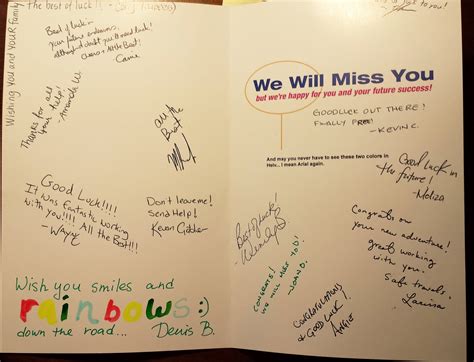 Wishing you and your family
the best of luck!!
Best of luck in
your future endeavors,
although I doubt you'll need luck!
Cheers & All the Best!
Thanks for all
your help!
Amanda W.
All the
Best!
Good Luck!!!!
It was fantastic working
with you!!!!
All the Best!!!
- Wayne
Don't leave me!
Send Help!
Kevin
Wish you smiles and
rainbows :)
down the road...
Denis B.
to you!
We Will Miss You
but we're happy for you and your future success!
GOODLUCK OUT THERE!
FINALLY FREE!
- KEVIN C.
And may you never have to see these two colors in
Helv... I mean Arial again.
Good Luck in
the future!
- Meliza
Best of luck!
Congrats on
your new adventure!
Great working
with you.
Safe travels,
Larissa
CONGRATS!
WE WILL MISS YOU!
- JOAN D.
CONGRATULATIONS
& GOOD LUCK!
ANGIE